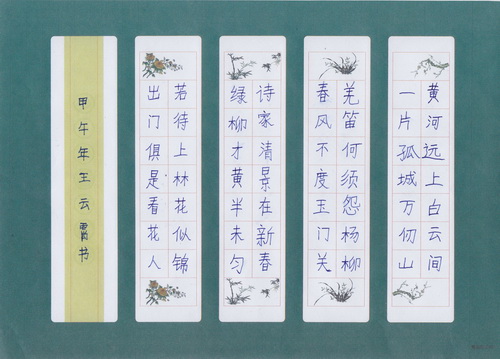 黄河远上白云间
一片孤城万仞山
羌笛何须怨杨柳
春风不度玉门关
诗家清景在新春
绿柳才黄半未匀
若待上林花似锦
出门俱是看花人
甲午年王云霄书